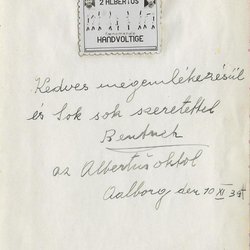 2 ALBERTUS
HANDVOLTIGE
Kedves megemlékezésül
és Sok sok szeretettel
az Albertusoktól
Aalborg den 10 XI 34